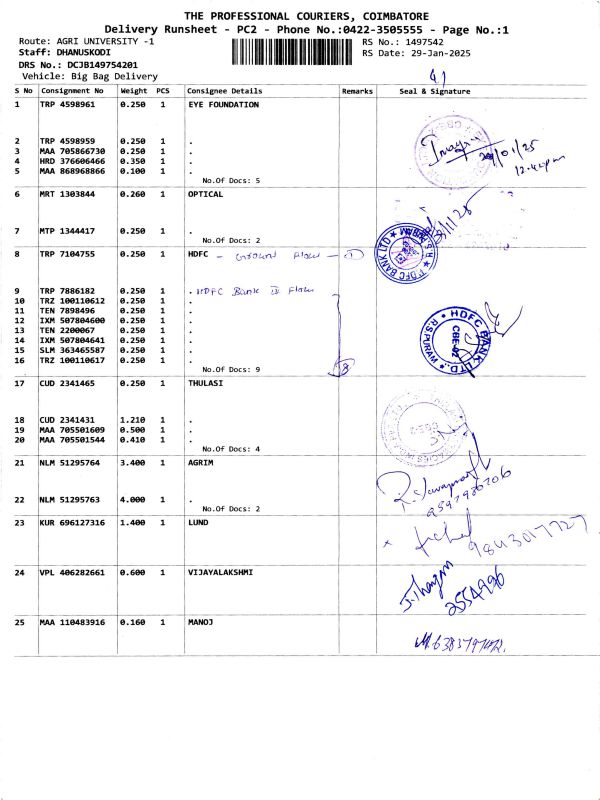 THE PROFESSIONAL COURIERS, COIMBATORE
Delivery Runsheet - PC2 - Phone No.:0422-3505555 - Page No.:1
Route: AGRI UNIVERSITY -1
RS No.: 1497542
Staff: DHANUSKODI
RS Date: 29-Jan-2025
DRS No.: DCJB149754201
Vehicle: Big Bag Delivery
S No Consignment No Weight PCS Consignee Details Remarks Seal & Signature
1 TRP 4598961 0.250 1 EYE FOUNDATION
2 TRP 4598959 0.250 1 .
3 MAA 705866730 0.250 1 .
4 HRD 376606466 0.350 1 .
5 MAA 868968866 0.100 1 .
No.Of Docs: 5
12.40pm
6 MRT 1303844 0.260 1 OPTICAL
7 MTP 1344417 0.250 1 .
No.Of Docs: 2
8 TRP 7104755 0.250 1 HDFC - Ground Floor - 1
HDFC BANK LTD
9 TRP 7886182 0.250 1 . HDFC Bank II Floor
10 TRZ 100110612 0.250 1 .
11 TEN 7898496 0.250 1 .
12 IXM 507804600 0.250 1 .
13 TEN 2200067 0.250 1 .
14 IXM 507804641 0.250 1 .
15 SLM 363465587 0.250 1 .
16 TRZ 100110617 0.250 1 .
No.Of Docs: 9
8
HDFC BANK LTD.
R.S.PURAM
CBE-02
17 CUD 2341465 0.250 1 THULASI
18 CUD 2341431 1.210 1 .
19 MAA 705501609 0.500 1 .
20 MAA 705501544 0.410 1 .
No.Of Docs: 4
21 NLM 51295764 3.400 1 AGRIM
22 NLM 51295763 4.000 1 .
No.Of Docs: 2
9597980706
23 KUR 696127316 1.400 1 LUND
9843017727
24 VPL 406282661 0.600 1 VIJAYALAKSHMI
2554996
25 MAA 110483916 0.160 1 MANOJ